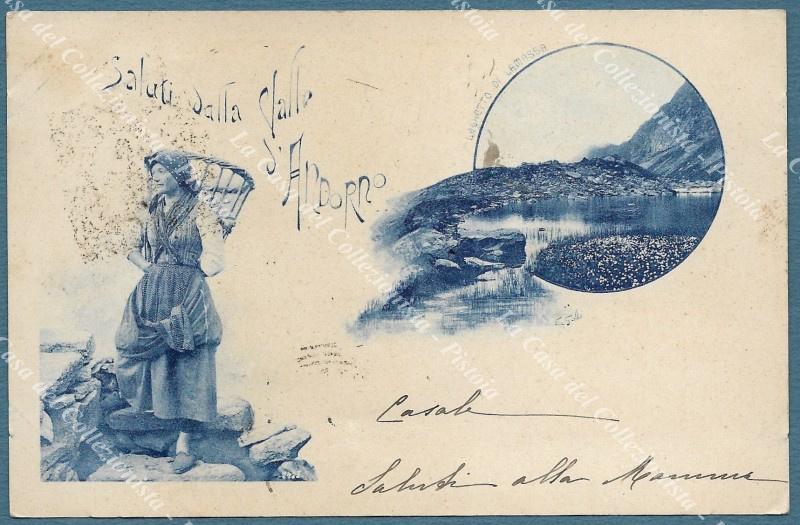 Saluti dalla Valle
d'ANDORNO
LAGHETTO DI LAMASSA
Casale
Saluti alla Mamma
La Casa del Collezionista - Pistoia